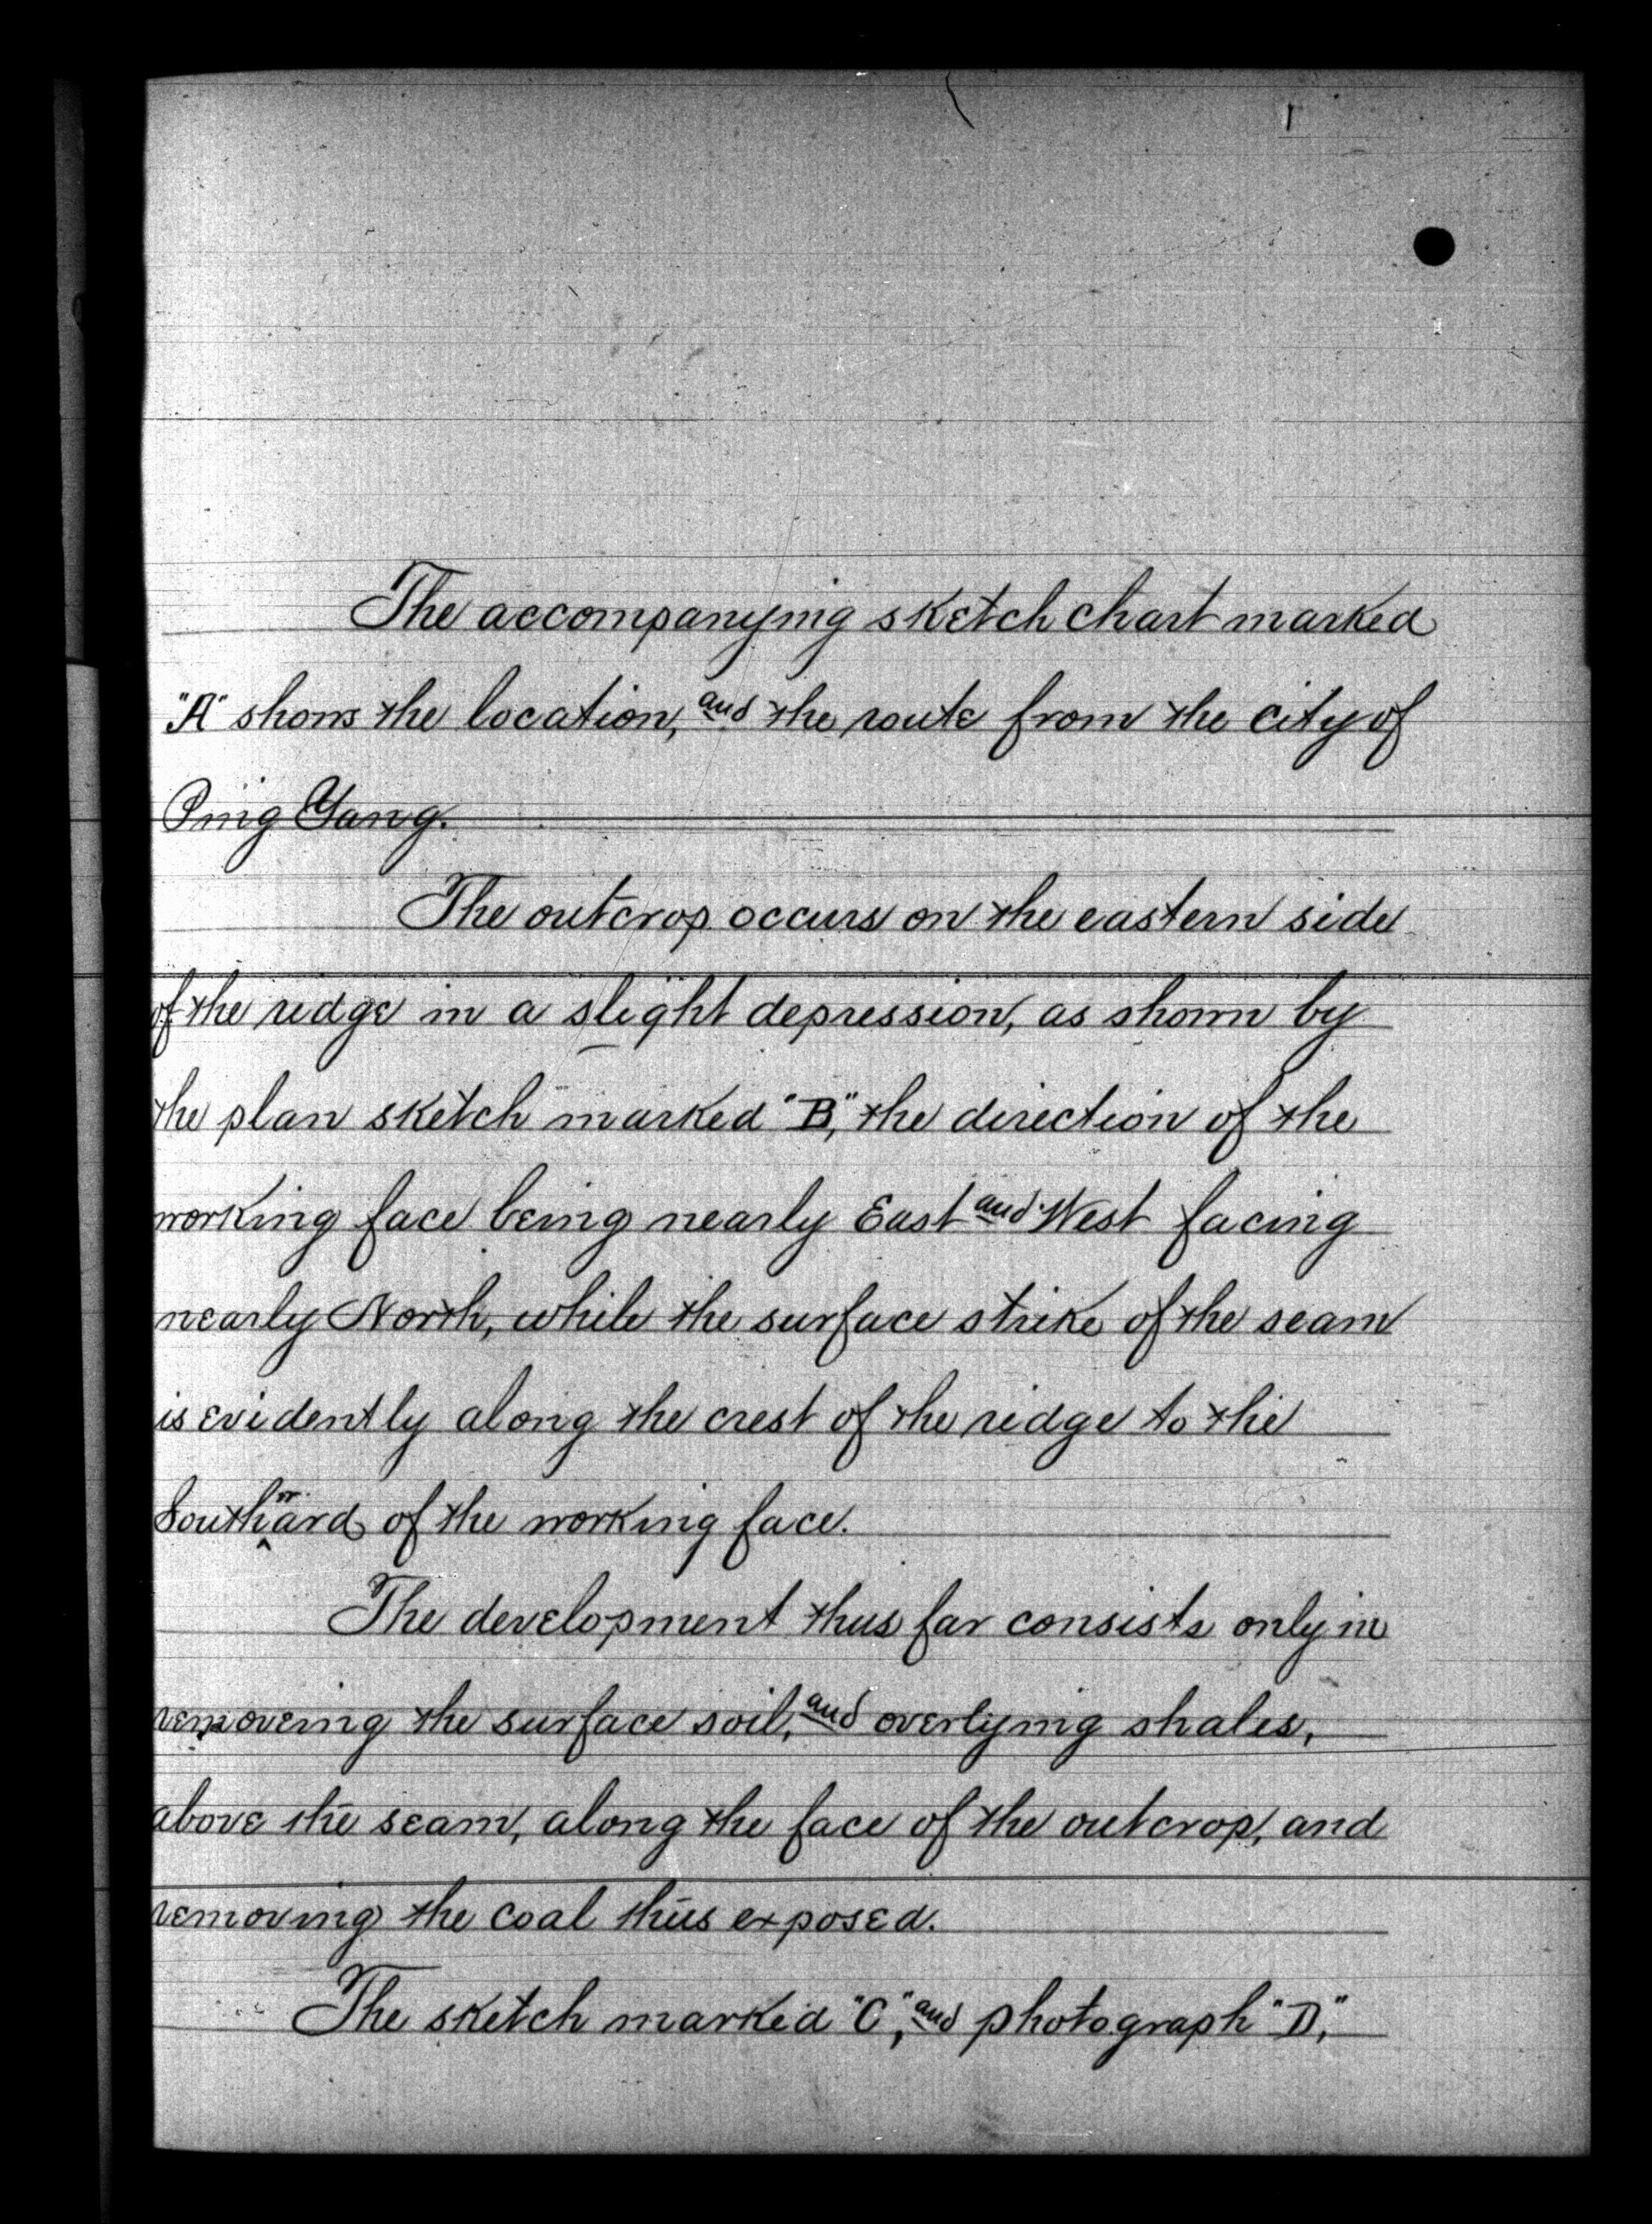 The accompanying sketch chart marked
"A" shows the location, and the route from the city of
Ping Yang.
The outcrop occurs on the eastern side
of the ridge in a slight depression, as shown by
the plan sketch marked "B", the direction of the
working face being nearly East and West facing
nearly North, while the surface strike of the seam
is evidently along the crest of the ridge to the
Southward of the working face.
The development thus far consists only in
removeing the surface soil, and overlying shales,
above the seam, along the face of the outcrop, and
removing the coal thus exposed.
The sketch marked "C", and photograph "D,"